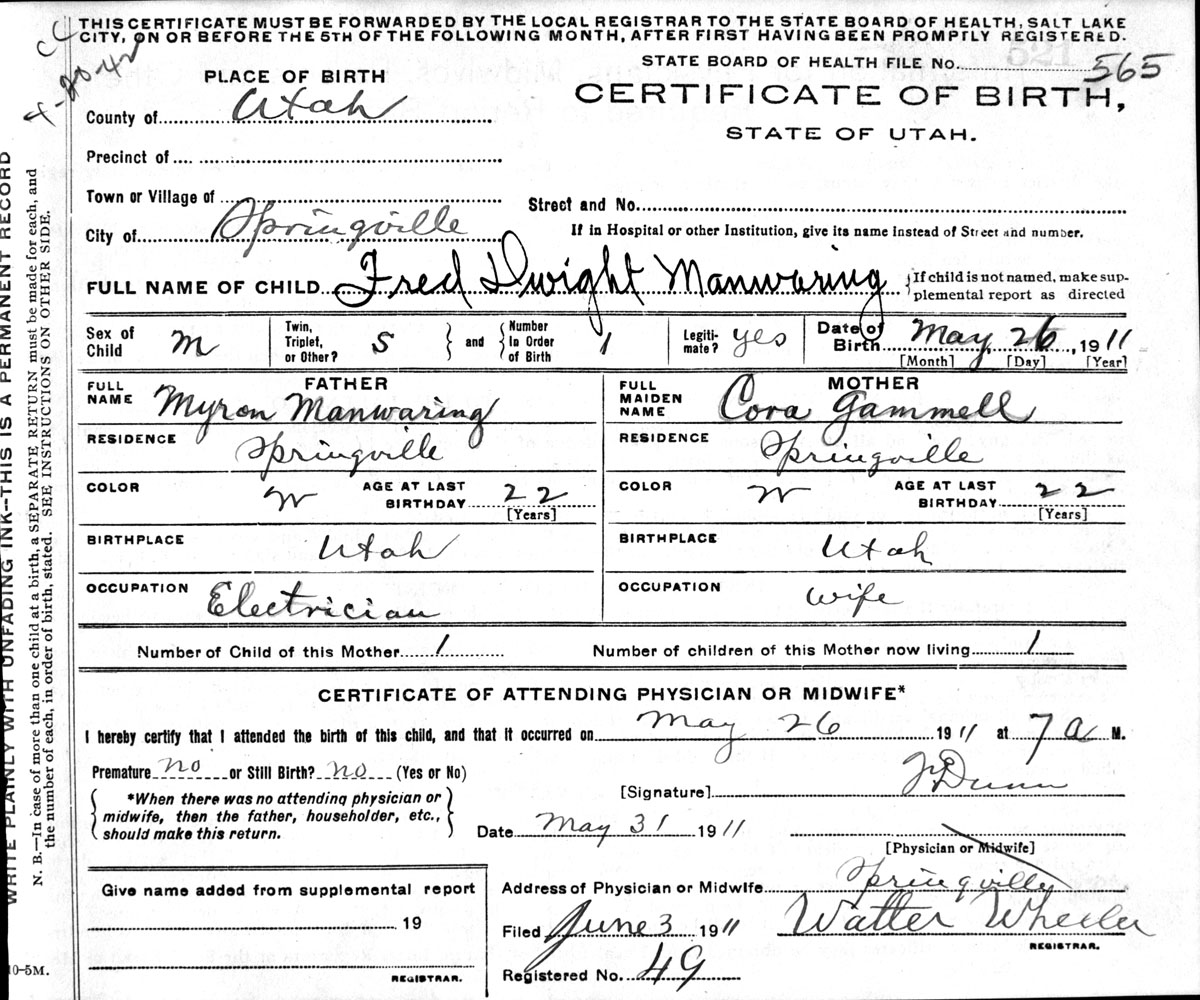 THIS CERTIFICATE MUST BE FORWARDED BY THE LOCAL REGISTRAR TO THE STATE BOARD OF HEALTH, SALT LAKE
CITY, ON OR BEFORE THE 5TH OF THE FOLLOWING MONTH, AFTER FIRST HAVING BEEN PROMPTLY REGISTERED.
4-20-42
WRITE PLAINLY WITH UNFADING INK--THIS IS A PERMANENT RECORD
N. B.—In case of more than one child at a birth, a SEPARATE RETURN must be made for each, and
the number of each, in order of birth, stated. SEE INSTRUCTIONS ON OTHER SIDE.
STATE BOARD OF HEALTH FILE No. 565
CERTIFICATE OF BIRTH,
STATE OF UTAH.
PLACE OF BIRTH
County of Utah
Precinct of
Town or Village of
City of Springville
Street and No.
If in Hospital or other Institution, give its name instead of Street and number.
FULL NAME OF CHILD Fred Dwight Manwaring {If child is not named, make sup-
plemental report as directed
Sex of Child M Twin, Triplet, or Other? S } and { Number In Order of Birth 1 Legiti- mate? yes Date of Birth May 26, 1911
[Month] [Day] [Year]
FATHER
FULL NAME Myron Manwaring
RESIDENCE Springville
COLOR W AGE AT LAST BIRTHDAY 22
[Years]
BIRTHPLACE Utah
OCCUPATION Electrician
MOTHER
FULL MAIDEN NAME Cora Gammell
RESIDENCE Springville
COLOR W AGE AT LAST BIRTHDAY 22
[Years]
BIRTHPLACE Utah
OCCUPATION wife
Number of Child of this Mother 1 Number of children of this Mother now living 1
CERTIFICATE OF ATTENDING PHYSICIAN OR MIDWIFE*
I hereby certify that I attended the birth of this child, and that it occurred on May 26 1911 at 7 a M.
Premature no or Still Birth? no (Yes or No)
*When there was no attending physician or
midwife, then the father, householder, etc.,
should make this return.
[Signature] Dunn
Date May 31 1911
[Physician or Midwife]
Give name added from supplemental report
19
REGISTRAR.
Address of Physician or Midwife Springville
Filed June 3 1911 Walter Wheeler
REGISTRAR.
Registered No. 49
10-5M.